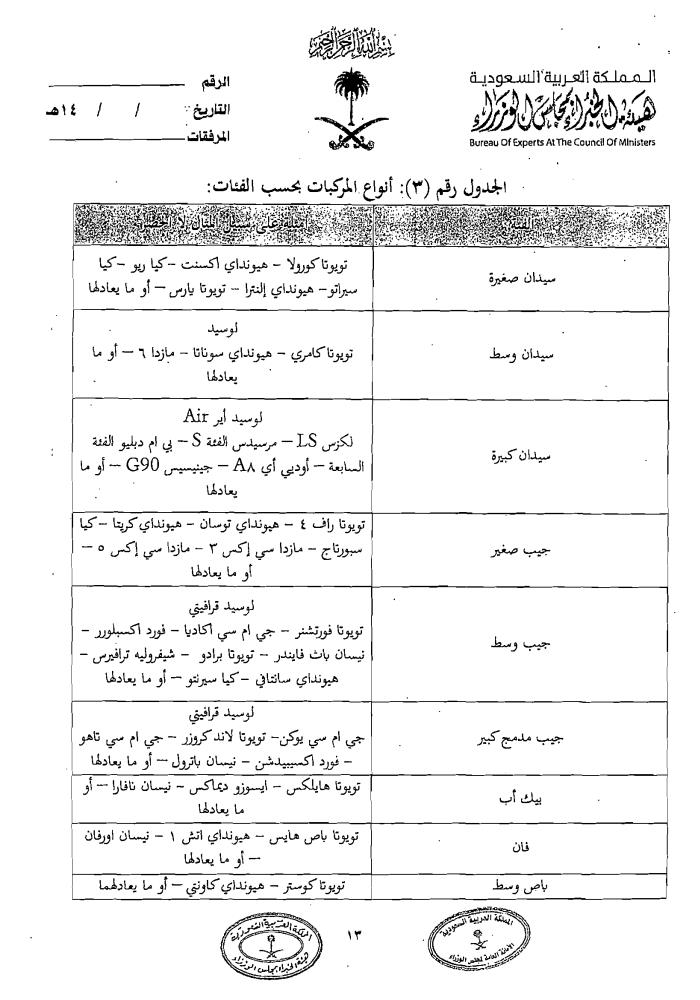 بسم الله الرحمن الرحيم
المملكة العربية السعودية
هيئة الخبراء بمجلس الوزراء
Bureau Of Experts At The Council Of Ministers
الرقم
التاريخ : / / ١٤هـ
المرفقات
الجدول رقم (٣): أنواع المركبات بحسب الفئات:
الفئة
أمثلة على سبيل المثال لا الحصر
سيدان صغيرة
تويوتا كورولا – هيونداي اكسنت – كيا ريو – كيا
سيراتو – هيونداي إلنترا – تويوتا يارس – أو ما يعادلها
سيدان وسط
لوسيد
تويوتا كامري – هيونداي سوناتا – مازدا ٦ – أو ما
يعادلها
سيدان كبيرة
لوسيد أير Air
لكزس LS – مرسيدس الفئة S – بي ام دبليو الفئة
السابعة – أوديي أي A٨ – جينيسيس G90 – أو ما
يعادلها
جيب صغير
تويوتا راف ٤ – هيونداي توسان – هيونداي كريتا – كيا
سبورتاج – مازدا سي إكس ٣ – مازدا سي إكس ٥ –
أو ما يعادلها
جيب وسط
لوسيد قرافيتي
تويوتا فورتشنر – جي ام سي اكاديا – فورد اكسبلورر –
نيسان باث فايندر – تويوتا برادو – شيفروليه ترافيرس –
هيونداي سانتافي – كيا سيرنتو – أو ما يعادلها
جيب مدمج كبير
لوسيد قرافيتي
جي ام سي يوكن – تويوتا لاند كروزر – جي ام سي تاهو
– فورد اكسبيديشن – نيسان باترول – أو ما يعادلها
بيك أب
تويوتا هايلكس – ايسوزو ديماكس – نيسان نافارا – أو
ما يعادلها
فان
تويوتا باص هايس – هيونداي اتش ١ – نيسان اورفان
– أو ما يعادلها
باص وسط
تويوتا كوستر – هيونداي كاونتي – أو ما يعادلهما
المملكة العربية السعودية
الأمانة العامة لمجلس الوزراء
١٣
المملكة العربية السعودية
هيئة الخبراء بمجلس الوزراء